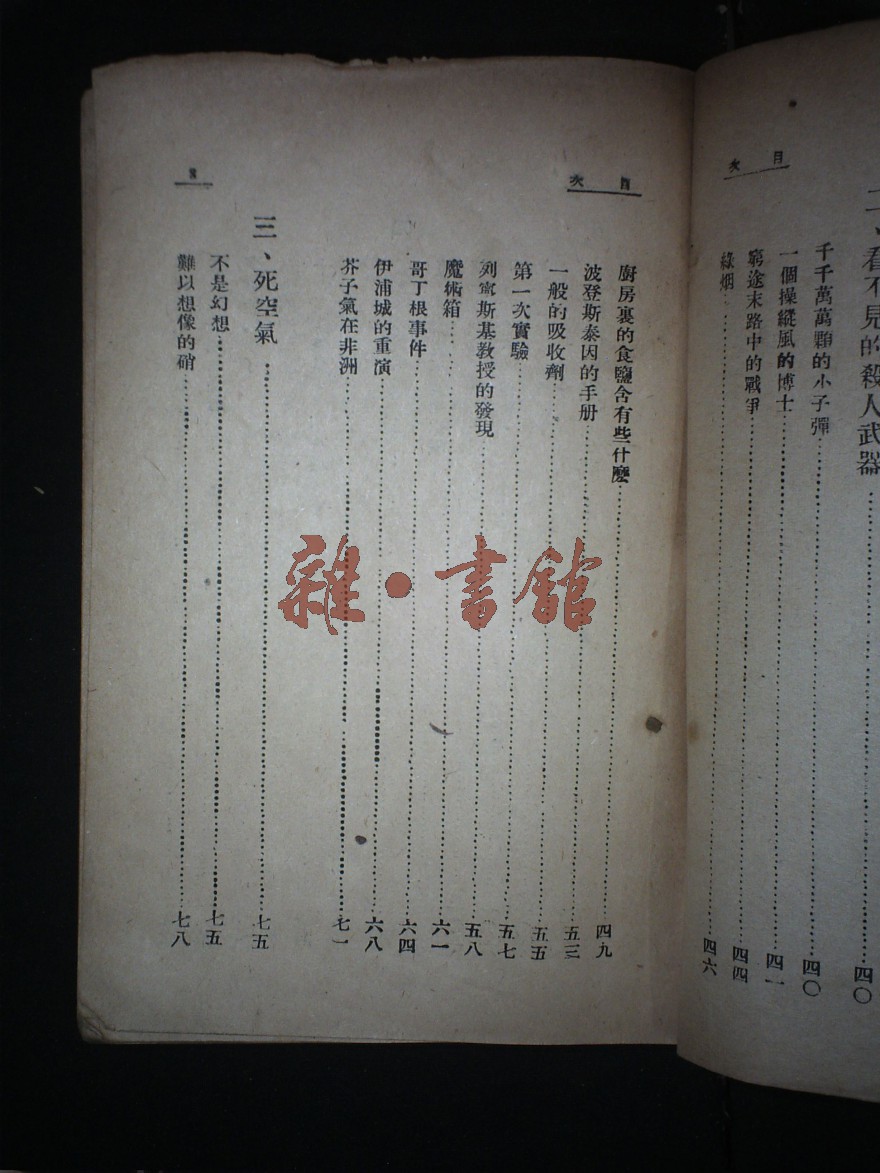 目次
二、看不見的殺人武器……四〇
千千萬萬顆的小子彈……四〇
一個操縱風的博士……四一
窮途末路中的戰爭……四四
綠烟……四六
目次
廚房裏的食鹽含有些什麼……四九
波登斯泰因的手册……五三
一般的吸收劑……五五
第一次實驗……五七
列寧斯基教授的發現……五八
魔術箱……六一
哥丁根事件……六四
伊浦城的重演……六八
芥子氣在非洲……七一
三、死空氣……七五
不是幻想……七五
難以想像的硝……七八
雜·書館